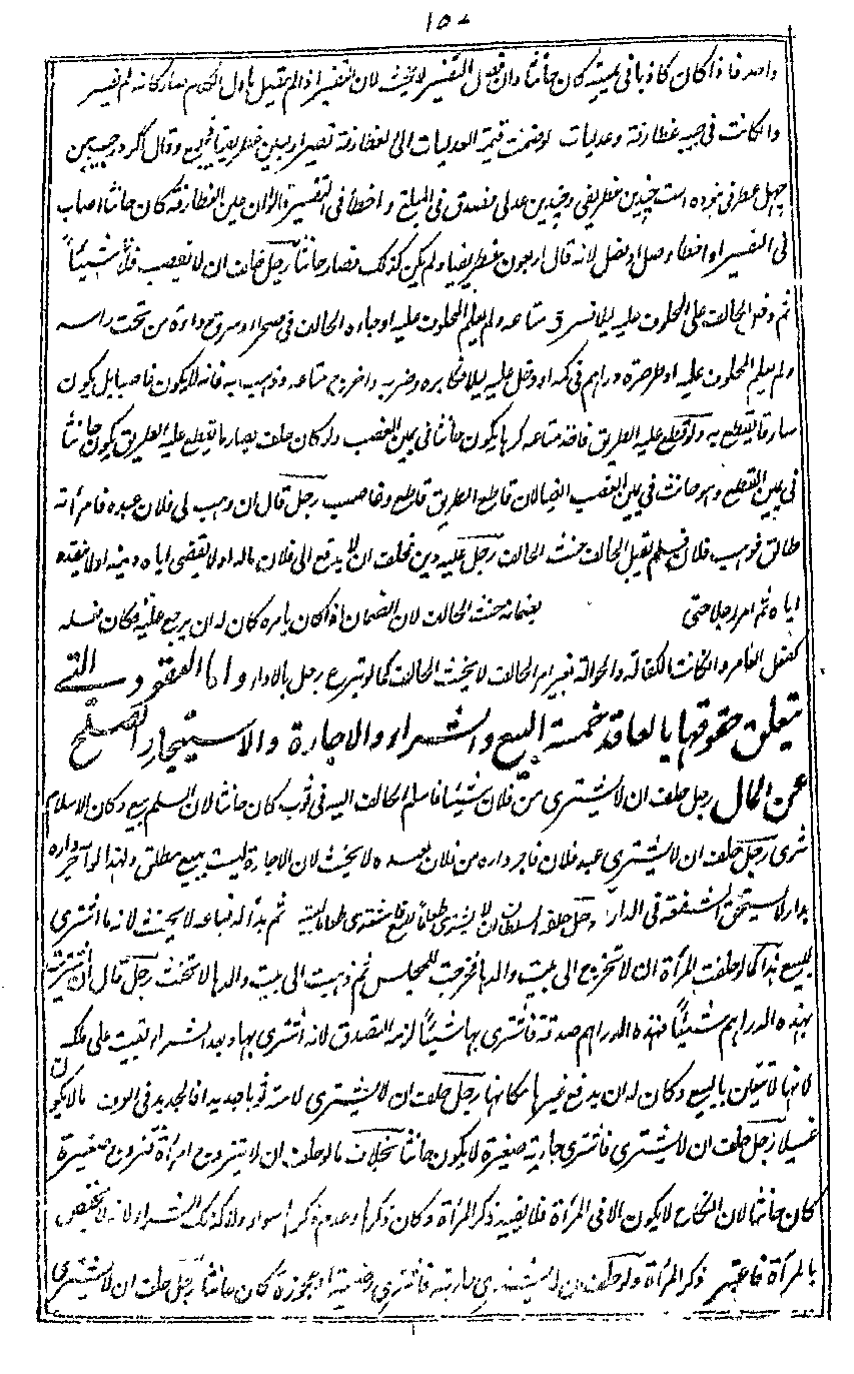 ١٥٨
واحد فاذا كان كاذبا فى يمينه كان حانثا وان فصل التفسير لا يحنث لان التفسير اذا لم يتصل باول الكلام صار كانه لم يفسر
وان كانت فى جيبه غطارفة وعدليات لو ضمت قيمة العدليات الى الغطارفة تصير اربعين غطريفيا وقال اگر در جيب من
چهل غطريفى نبوده است چندين غطريفى وچندين عدلى يصدق فى المبلغ و اخطأ فى التفسير عين الغطارفة كان حانثا اصاب
فى التفسير او اخطا وصل او فصل لانه قال اربعون غطريفيا ولم يكن كذلك فصار حانثا رجل حلف ان لا يغصب فلانا شيئا
ثم دخل الحالف على المحلوف عليه ليلا فسرق متاعه ولم يعلم المحلوف عليه او جاءه الحالف فى صحراء وسرق رداءه من تحت راسه
ولم يعلم المحلوف عليه او طر صرة دراهم فى كمه او دخل عليه ليلا فكابره وضربه واخرج متاعه وذهب به فانه لا يكون غاصبا بل يكون
سارقا يقطع به ولو قطع عليه الطريق فاخذ متاعه كرها يكون حانثا فى يمين الغصب ولو كان حلف يقطع عليه الطريق يكون حانثا
فى يمين القطع وهو حانث فى يمين الغصب ايضا لان قاطع الطريق قاطع وغاصب رجل قال ان وهب لى فلان عبده فامرأته
طالق فوهب فلان فلم يقبل الحالف حنث الحالف رجل عليه دين فحلف ان لا يدفع الى فلان ماله اولا يقضى اياه دينه اولا ينقده
اياه ثم امر رجلا حتى بضمانه حنث الحالف لان الضمان اذا كان بامره كان له ان يرجع عليه فكان فعله
كفعل الامر وان كانت الكفالة والحوالة بغير امر الحالف لا يحنث الحالف كما لو تبرع رجل بالاداء واما العقود التى
تتعلق حقوقها بالعاقد خمسة البيع والشراء والاجارة والاستيجار والصلح
عن المال رجل حلف ان لا يشترى من فلان شيئا فاسلم الحالف اليه فى ثوب كان حانثا لان السلم بيع وكان الاسلام
شرى رجل حلف ان لا يشترى عبد فلان فاجر داره من فلان بعبده لا يحنث لان الاجارة ليست ببيع مطلق ولهذا لو آجر داره
بدار لا يستحق الشفعة فى الدار رجل حلفه السلطان ان لا يشترى طعاما للبيع فاشترى طعاما لبيته ثم بدأ له فباعه لا يحنث لانه ما اشترى
للبيع هذا كما لو حلفت المرأة ان لا تخرج الى بيت والدها فخرجت للمجلس ثم ذهبت الى بيت والدها لا تحنث رجل قال ان اشتريت
بهذه الدراهم شيئا فهذه الدراهم صدقة فاشترى بها شيئا لزمه التصدق لانه اشترى بها وبعد الشراء بقيت على ملكه
لانها لا تتعين بالبيع وكان له ان يدفع غيرها مكانها رجل حلف ان لا يشترى لامته ثوبا جديدا فالجديد فى العرف ما لا يكون
غسيلا رجل حلف ان لا يشترى فاشترى جارية صغيرة لا يكون حانثا بخلاف ما لو حلف ان لا يتزوج امرأة فتزوج صغيرة
كان حانثا لان النكاح لا يكون الا فى المرأة فلا يفيد ذكر المرأة وكان ذكرها وعدم ذكرها سواء ولا كذلك الشراء لانه لا يختص
بالمرأة فاعتبر ذكر المرأة ولو حلف ان لا يشترى جارية فاشترى رضيعة او عجوزة كان حانثا رجل حلف ان لا يشترى